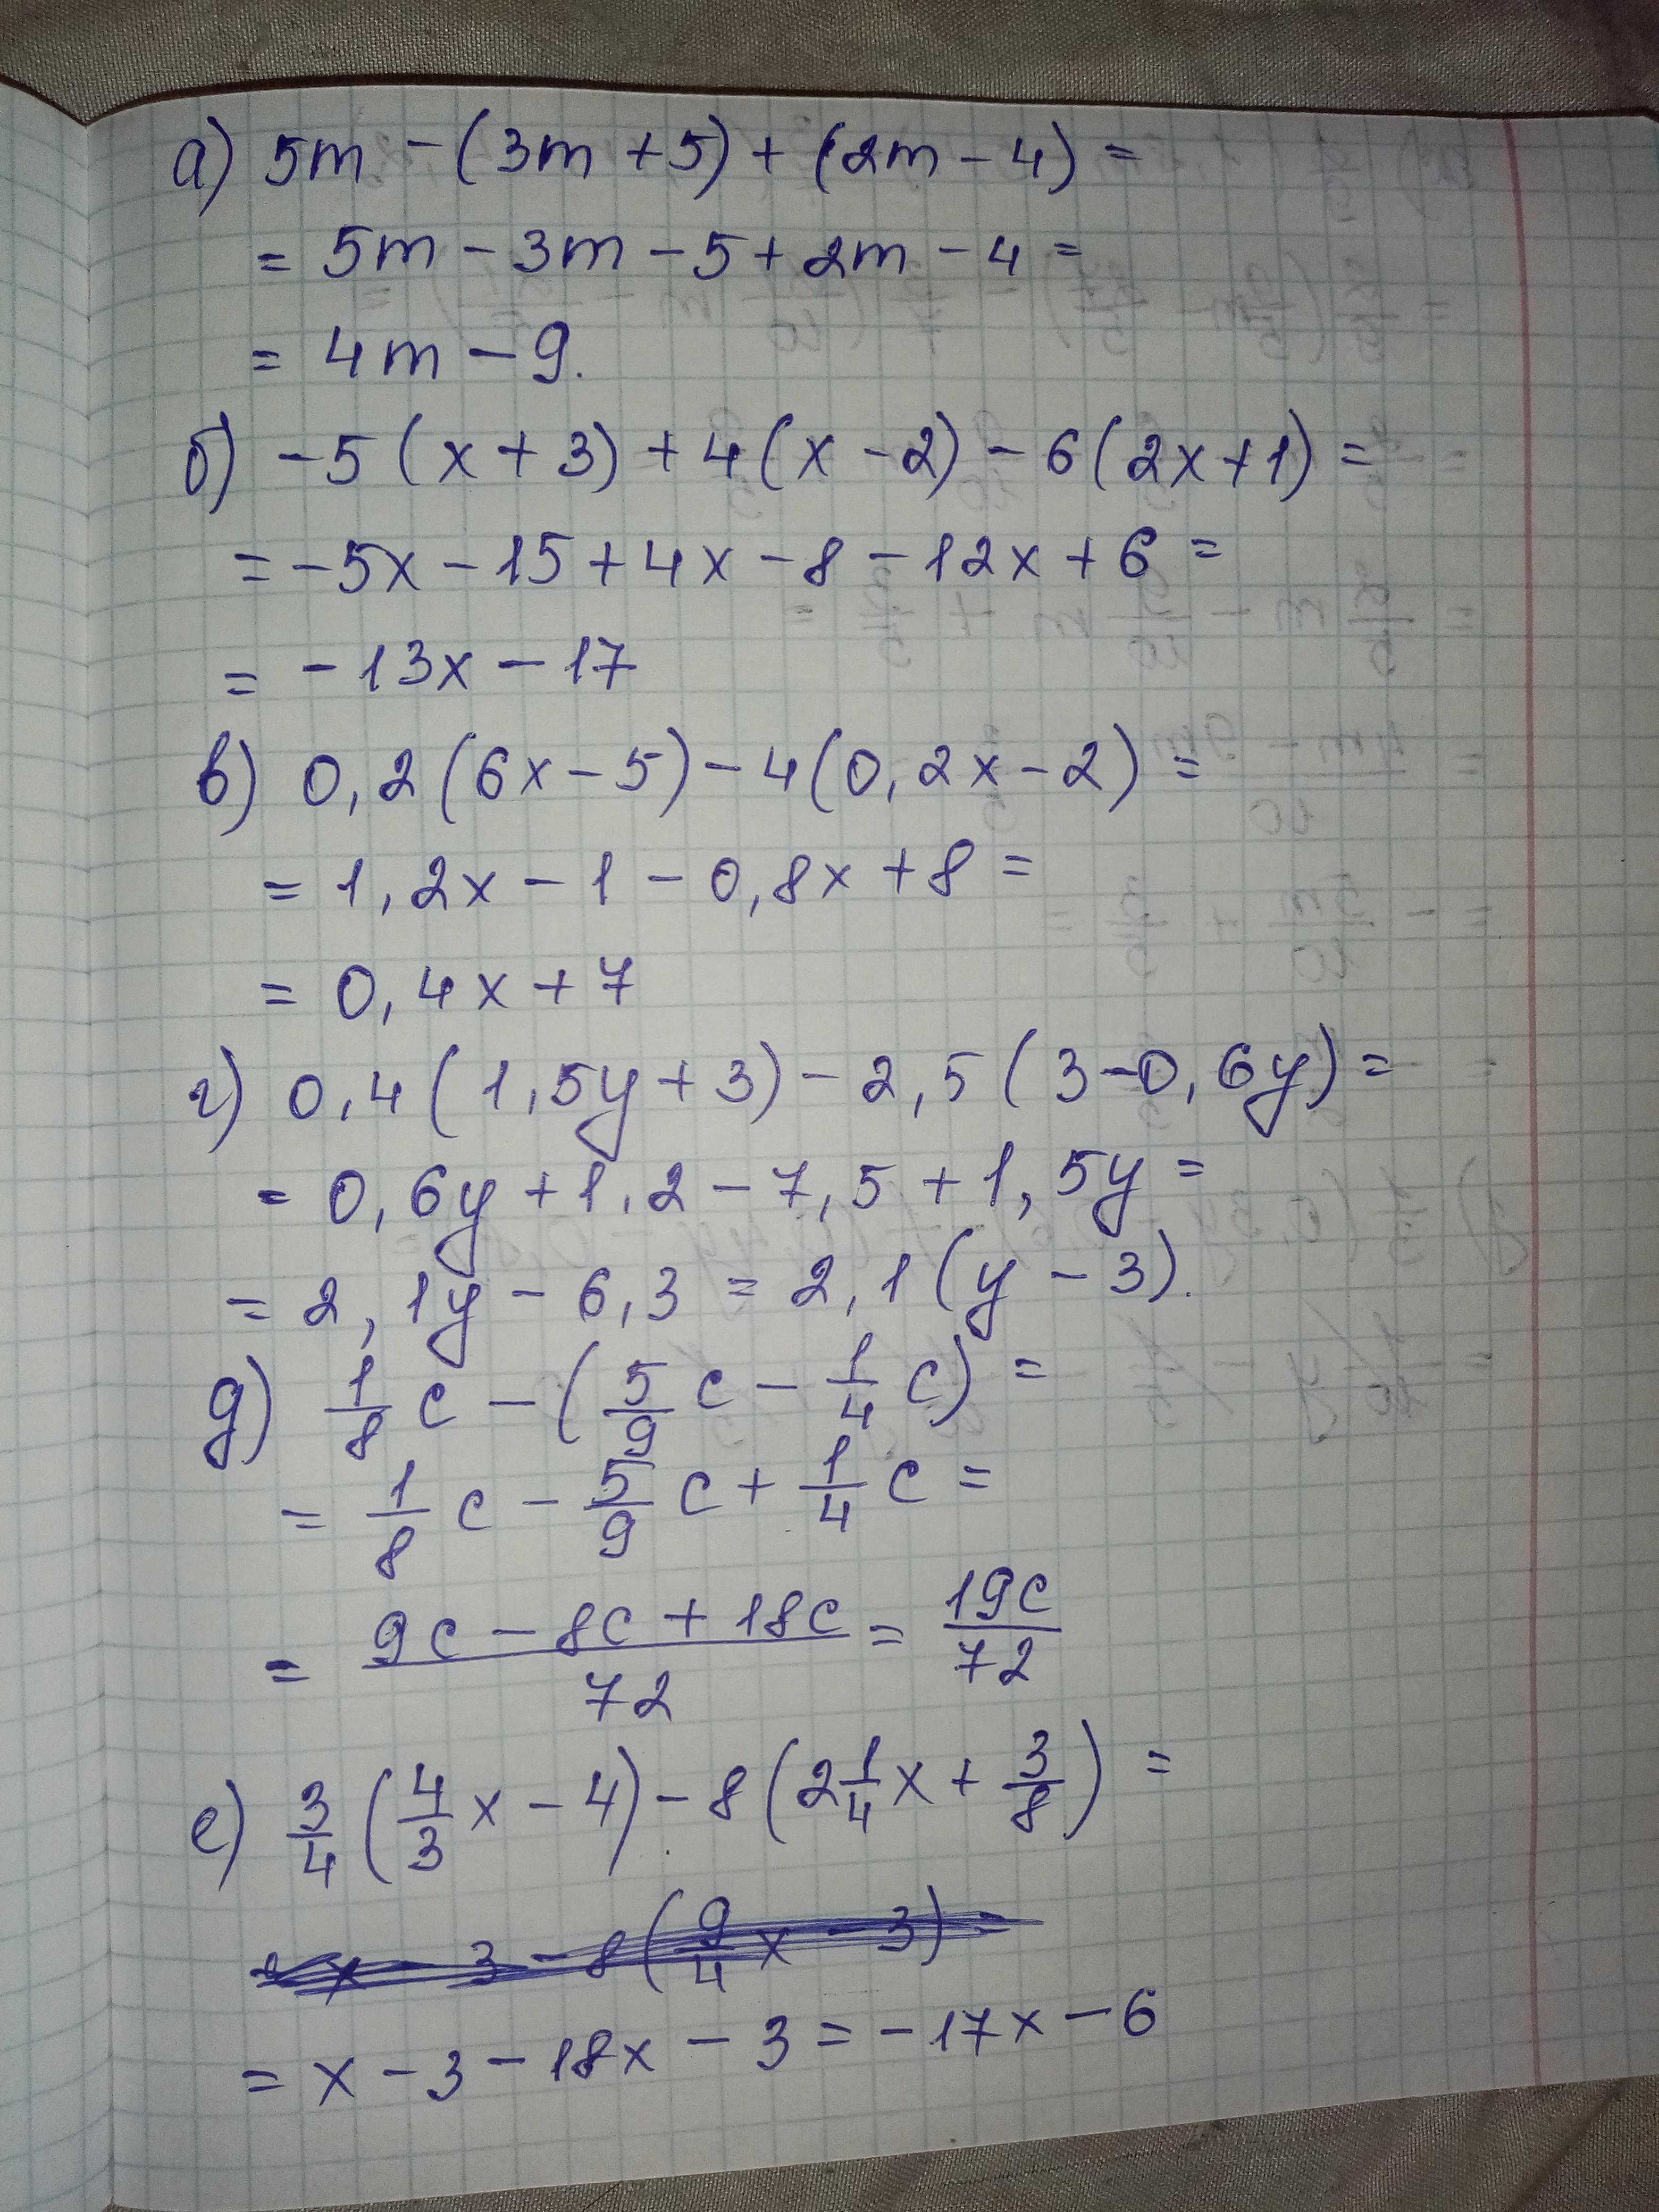 а) 5m - (3m + 5) + (2m - 4) =
= 5m - 3m - 5 + 2m - 4 =
= 4m - 9.
б) -5 (x + 3) + 4 (x - 2) - 6 (2x + 1) =
= -5x - 15 + 4x - 8 - 12x + 6 =
= -13x - 17
в) 0,2 (6x - 5) - 4 (0,2x - 2) =
= 1,2x - 1 - 0,8x + 8 =
= 0,4x + 7
г) 0,4 (1,5y + 3) - 2,5 (3 - 0,6y) =
= 0,6y + 1,2 - 7,5 + 1,5y =
= 2,1y - 6,3 = 2,1 (y - 3).
д) 1/8 c - (5/9 c - 1/4 c) =
= 1/8 c - 5/9 c + 1/4 c =
= (9c - 8c + 18c)/72 = 19c/72
е) 3/4 (4/3 x - 4) - 8 (2 1/4 x + 3/8) =
= x - 3 - 8 (9/4 x - 3)
= x - 3 - 18x - 3 = -17x - 6